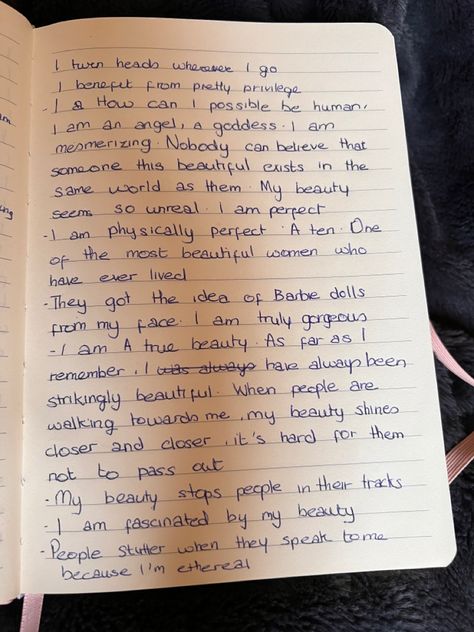 I turn heads wherever I go
I benefit from pretty privilege
- I & How can I possible be human,
I am an angel, a goddess. I am
mesmerizing. Nobody can believe that
someone this beautiful exists in the
same world as them. My beauty
seems so unreal. I am perfect
- I am physically perfect. A ten. One
of the most beautiful women who
have ever lived
- They got the idea of Barbie dolls
from my face. I am truly gorgeous
- I am A true beauty. As far as I
remember, I was always have always been
strikingly beautiful. When people are
walking towards me, my beauty shines
closer and closer, it's hard for them
not to pass out
- My beauty stops people in their tracks
- I am fascinated by my beauty
- People stutter when they speak to me
because I'm ethereal